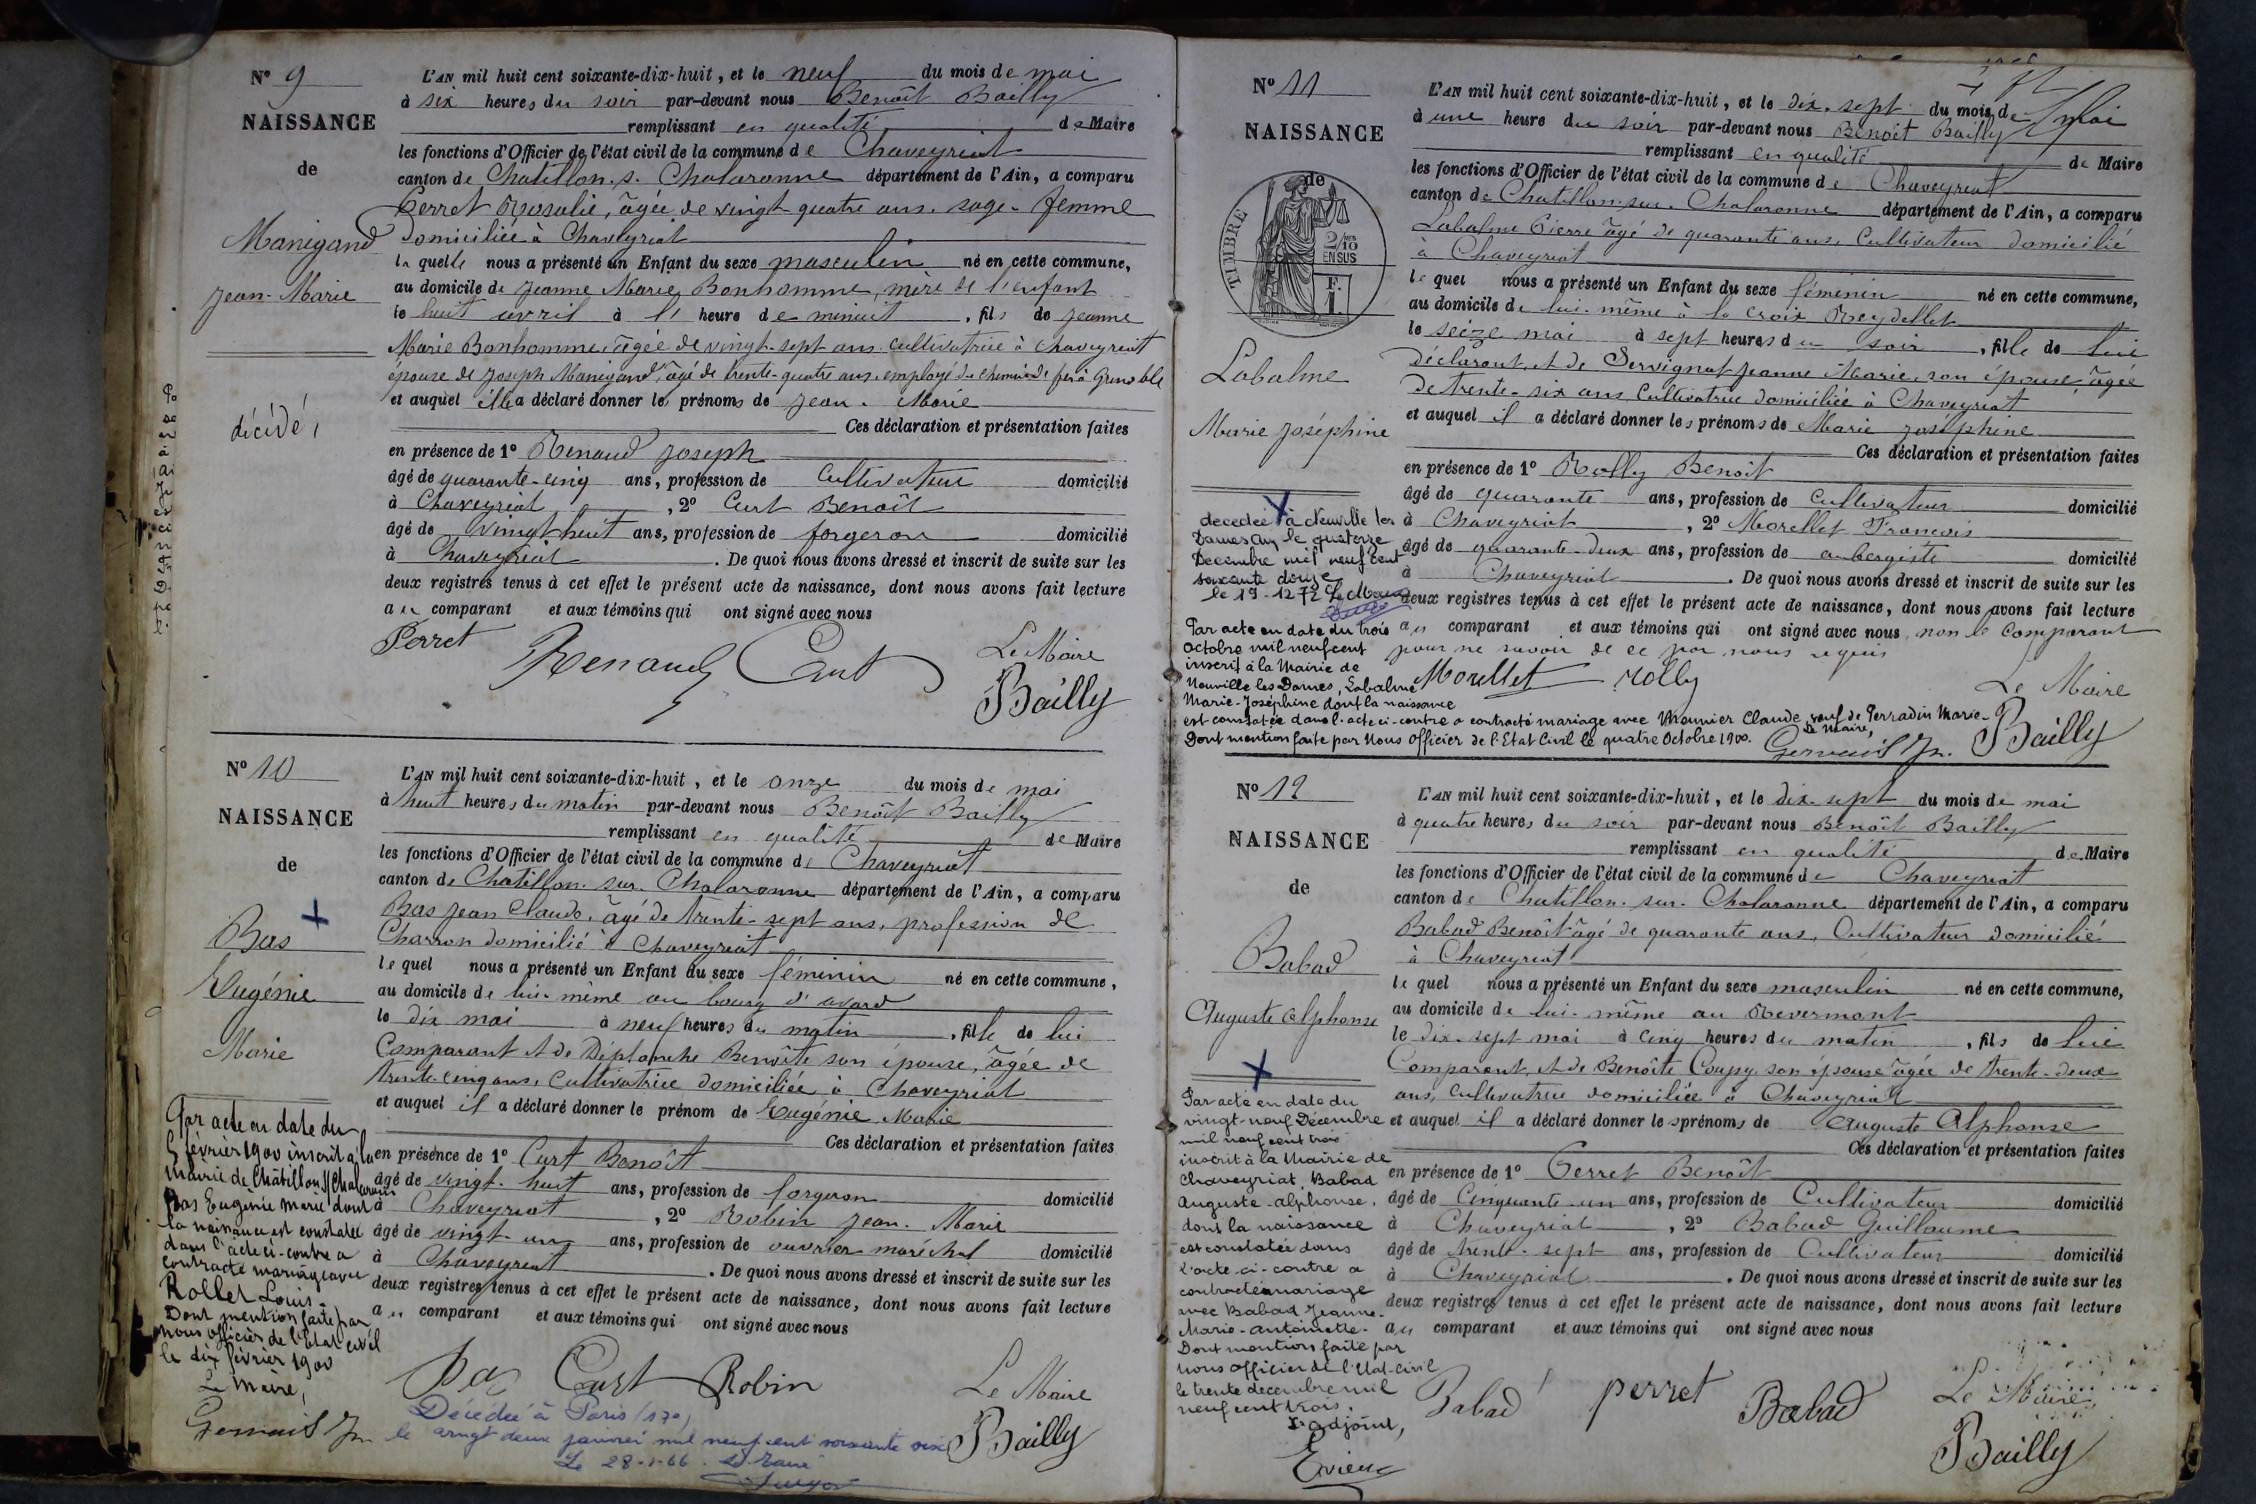 N° 9
NAISSANCE
de
Manigand
Jean-Marie
décédé,
L'AN mil huit cent soixante-dix-huit, et le neuf du mois de mai
à six heures du soir par-devant nous Benoît Bailly
remplissant en qualité de Maire
les fonctions d'Officier de l'état civil de la commune de Chaveyriat
canton de Chatillon-s-Chalaronne département de l'Ain, a comparu
Perret Rosalie, âgée de vingt quatre ans, sage-femme
domiciliée à Chaveyriat
laquelle nous a présenté un Enfant du sexe masculin né en cette commune,
au domicile de Jeanne Marie Bonhomme, mère de l'enfant
le huit avril à l' heure de minuit, fils de Jeanne
Marie Bonhomme, âgée de vingt-sept ans cultivatrice à Chaveyriat
épouse de Joseph Manigand, âgé de trente-quatre ans, employé du chemin de fer à Grenoble
et auquel elle a déclaré donner les prénoms de Jean-Marie
Ces déclaration et présentation faites
en présence de 1° Renaud Joseph
âgé de quarante-cinq ans, profession de Cultivateur domicilié
à Chaveyriat, 2° Curt Benoît
âgé de vingt huit ans, profession de forgeron domicilié
à Chaveyriat. De quoi nous avons dressé et inscrit de suite sur les
deux registres tenus à cet effet le présent acte de naissance, dont nous avons fait lecture
au comparant et aux témoins qui ont signé avec nous
Perret Renaud Curt
Le Maire
Bailly
N° 10
NAISSANCE
de
Bas
Eugénie
Marie
Par acte en date du
février 1900 inscrit à la
Mairie de Châtillon s/ Chalaronne
Bas Eugénie Marie dont
la naissance est constatée
dans l'acte ci-contre a
contracté mariage avec
Rollet Louis.
Dont mention faite par
nous officier de l'Etat civil
le dix février 1900
Le Maire,
Gervais Jn
L'AN mil huit cent soixante-dix-huit, et le onze du mois de mai
à huit heures du matin par-devant nous Benoît Bailly
remplissant en qualité de Maire
les fonctions d'Officier de l'état civil de la commune de Chaveyriat
canton de Chatillon-sur-Chalaronne département de l'Ain, a comparu
Bas Jean Claude, âgé de trente-sept ans, profession de
Charron domicilié à Chaveyriat
lequel nous a présenté un Enfant du sexe féminin né en cette commune,
au domicile de lui-même au bourg
le dix mai à neuf heures du matin, fille de lui
Comparant et de Déplanche Benoîte son épouse, âgée de
trente-cinq ans, Cultivatrice domiciliée à Chaveyriat
et auquel il a déclaré donner le prénom de Eugénie Marie
Ces déclaration et présentation faites
en présence de 1° Curt Benoît
âgé de vingt-huit ans, profession de forgeron domicilié
à Chaveyriat, 2° Robin Jean-Marie
âgé de vingt-un ans, profession de ouvrier maréchal domicilié
à Chaveyriat. De quoi nous avons dressé et inscrit de suite sur les
deux registres tenus à cet effet le présent acte de naissance, dont nous avons fait lecture
au comparant et aux témoins qui ont signé avec nous
Bas Curt Robin
Le Maire
Bailly
Décédée à Paris
le vingt deux janvier mil neuf cent soixante six
Le 28-1-66. Le Maire
N° 11
NAISSANCE
de
TIMBRE
2/10
EN SUS
F.
1.
Labalme
Marie Joséphine
décédée à Neuville les
Dames Ain le quatorze
Decembre mil neuf cent
soixante douze
le 19-12 72 Le Maire
Par acte en date du trois
octobre mil neuf cent
inscrit à la Mairie de
Neuville les Dames, Labalme
Marie-Joséphine dont la naissance
est constatée dans l'acte ci-contre a contracté mariage avec Meunier Claude, veuf de Perradin Marie.
Dont mention faite par Nous Officier de l'Etat Civil le quatre Octobre 1900.
Le Maire,
Gervais Jn.
L'AN mil huit cent soixante-dix-huit, et le dix-sept du mois de Mai
à une heure du soir par-devant nous Benoît Bailly
remplissant en qualité de Maire
les fonctions d'Officier de l'état civil de la commune de Chaveyriat
canton de Chatillon-sur-Chalaronne département de l'Ain, a comparu
Labalme Pierre âgé de quarante ans, Cultivateur domicilié
à Chaveyriat
lequel nous a présenté un Enfant du sexe féminin né en cette commune,
au domicile de lui-même à la croix Reydellet
le seize mai à sept heures du soir, fille de lui
déclarant et de Servignat Jeanne Marie, son épouse, âgée
de trente-six ans Cultivatrice domiciliée à Chaveyriat
et auquel il a déclaré donner les prénoms de Marie Joséphine
Ces déclaration et présentation faites
en présence de 1° Rolly Benoît
âgé de quarante ans, profession de Cultivateur domicilié
à Chaveyriat, 2° Morellet François
âgé de quarante-deux ans, profession de aubergiste domicilié
à Chaveyriat. De quoi nous avons dressé et inscrit de suite sur les
deux registres tenus à cet effet le présent acte de naissance, dont nous avons fait lecture
au comparant et aux témoins qui ont signé avec nous, non le Comparant
pour ne savoir de ce par nous requis
Morellet Rolly
Le Maire
Bailly
N° 12
NAISSANCE
de
Babad
Auguste Alphonse
Par acte en date du
vingt-neuf Décembre
mil neuf cent trois
inscrit à la Mairie de
Chaveyriat, Babad
Auguste-Alphonse,
dont la naissance
est constatée dans
l'acte ci-contre a
contracté mariage
avec Babad Jeanne-
Marie-Antoinette.
Dont mention faite par
nous officier de l'Etat-Civil
le trente decembre mil
neuf cent trois.
L'adjoint,
Evieux
L'AN mil huit cent soixante-dix-huit, et le dix-sept du mois de mai
à quatre heures du soir par-devant nous Benoît Bailly
remplissant en qualité de Maire
les fonctions d'Officier de l'état civil de la commune de Chaveyriat
canton de Chatillon-sur-Chalaronne département de l'Ain, a comparu
Babad Benoît âgé de quarante ans, Cultivateur domicilié
à Chaveyriat
lequel nous a présenté un Enfant du sexe masculin né en cette commune,
au domicile de lui-même au Revermont
le dix-sept mai à cinq heures du matin, fils de lui
Comparant, et de Benoîte Coupy son épouse âgée de trente-deux
ans, cultivatrice domiciliée à Chaveyriat
et auquel il a déclaré donner les prénoms de Auguste Alphonse
Ces déclaration et présentation faites
en présence de 1° Perret Benoît
âgé de Cinquante-un ans, profession de Cultivateur domicilié
à Chaveyriat, 2° Babad Guillaume
âgé de trente-sept ans, profession de Cultivateur domicilié
à Chaveyriat. De quoi nous avons dressé et inscrit de suite sur les
deux registres tenus à cet effet le présent acte de naissance, dont nous avons fait lecture
au comparant et aux témoins qui ont signé avec nous
Babad perret Babad
Le Maire,
Bailly